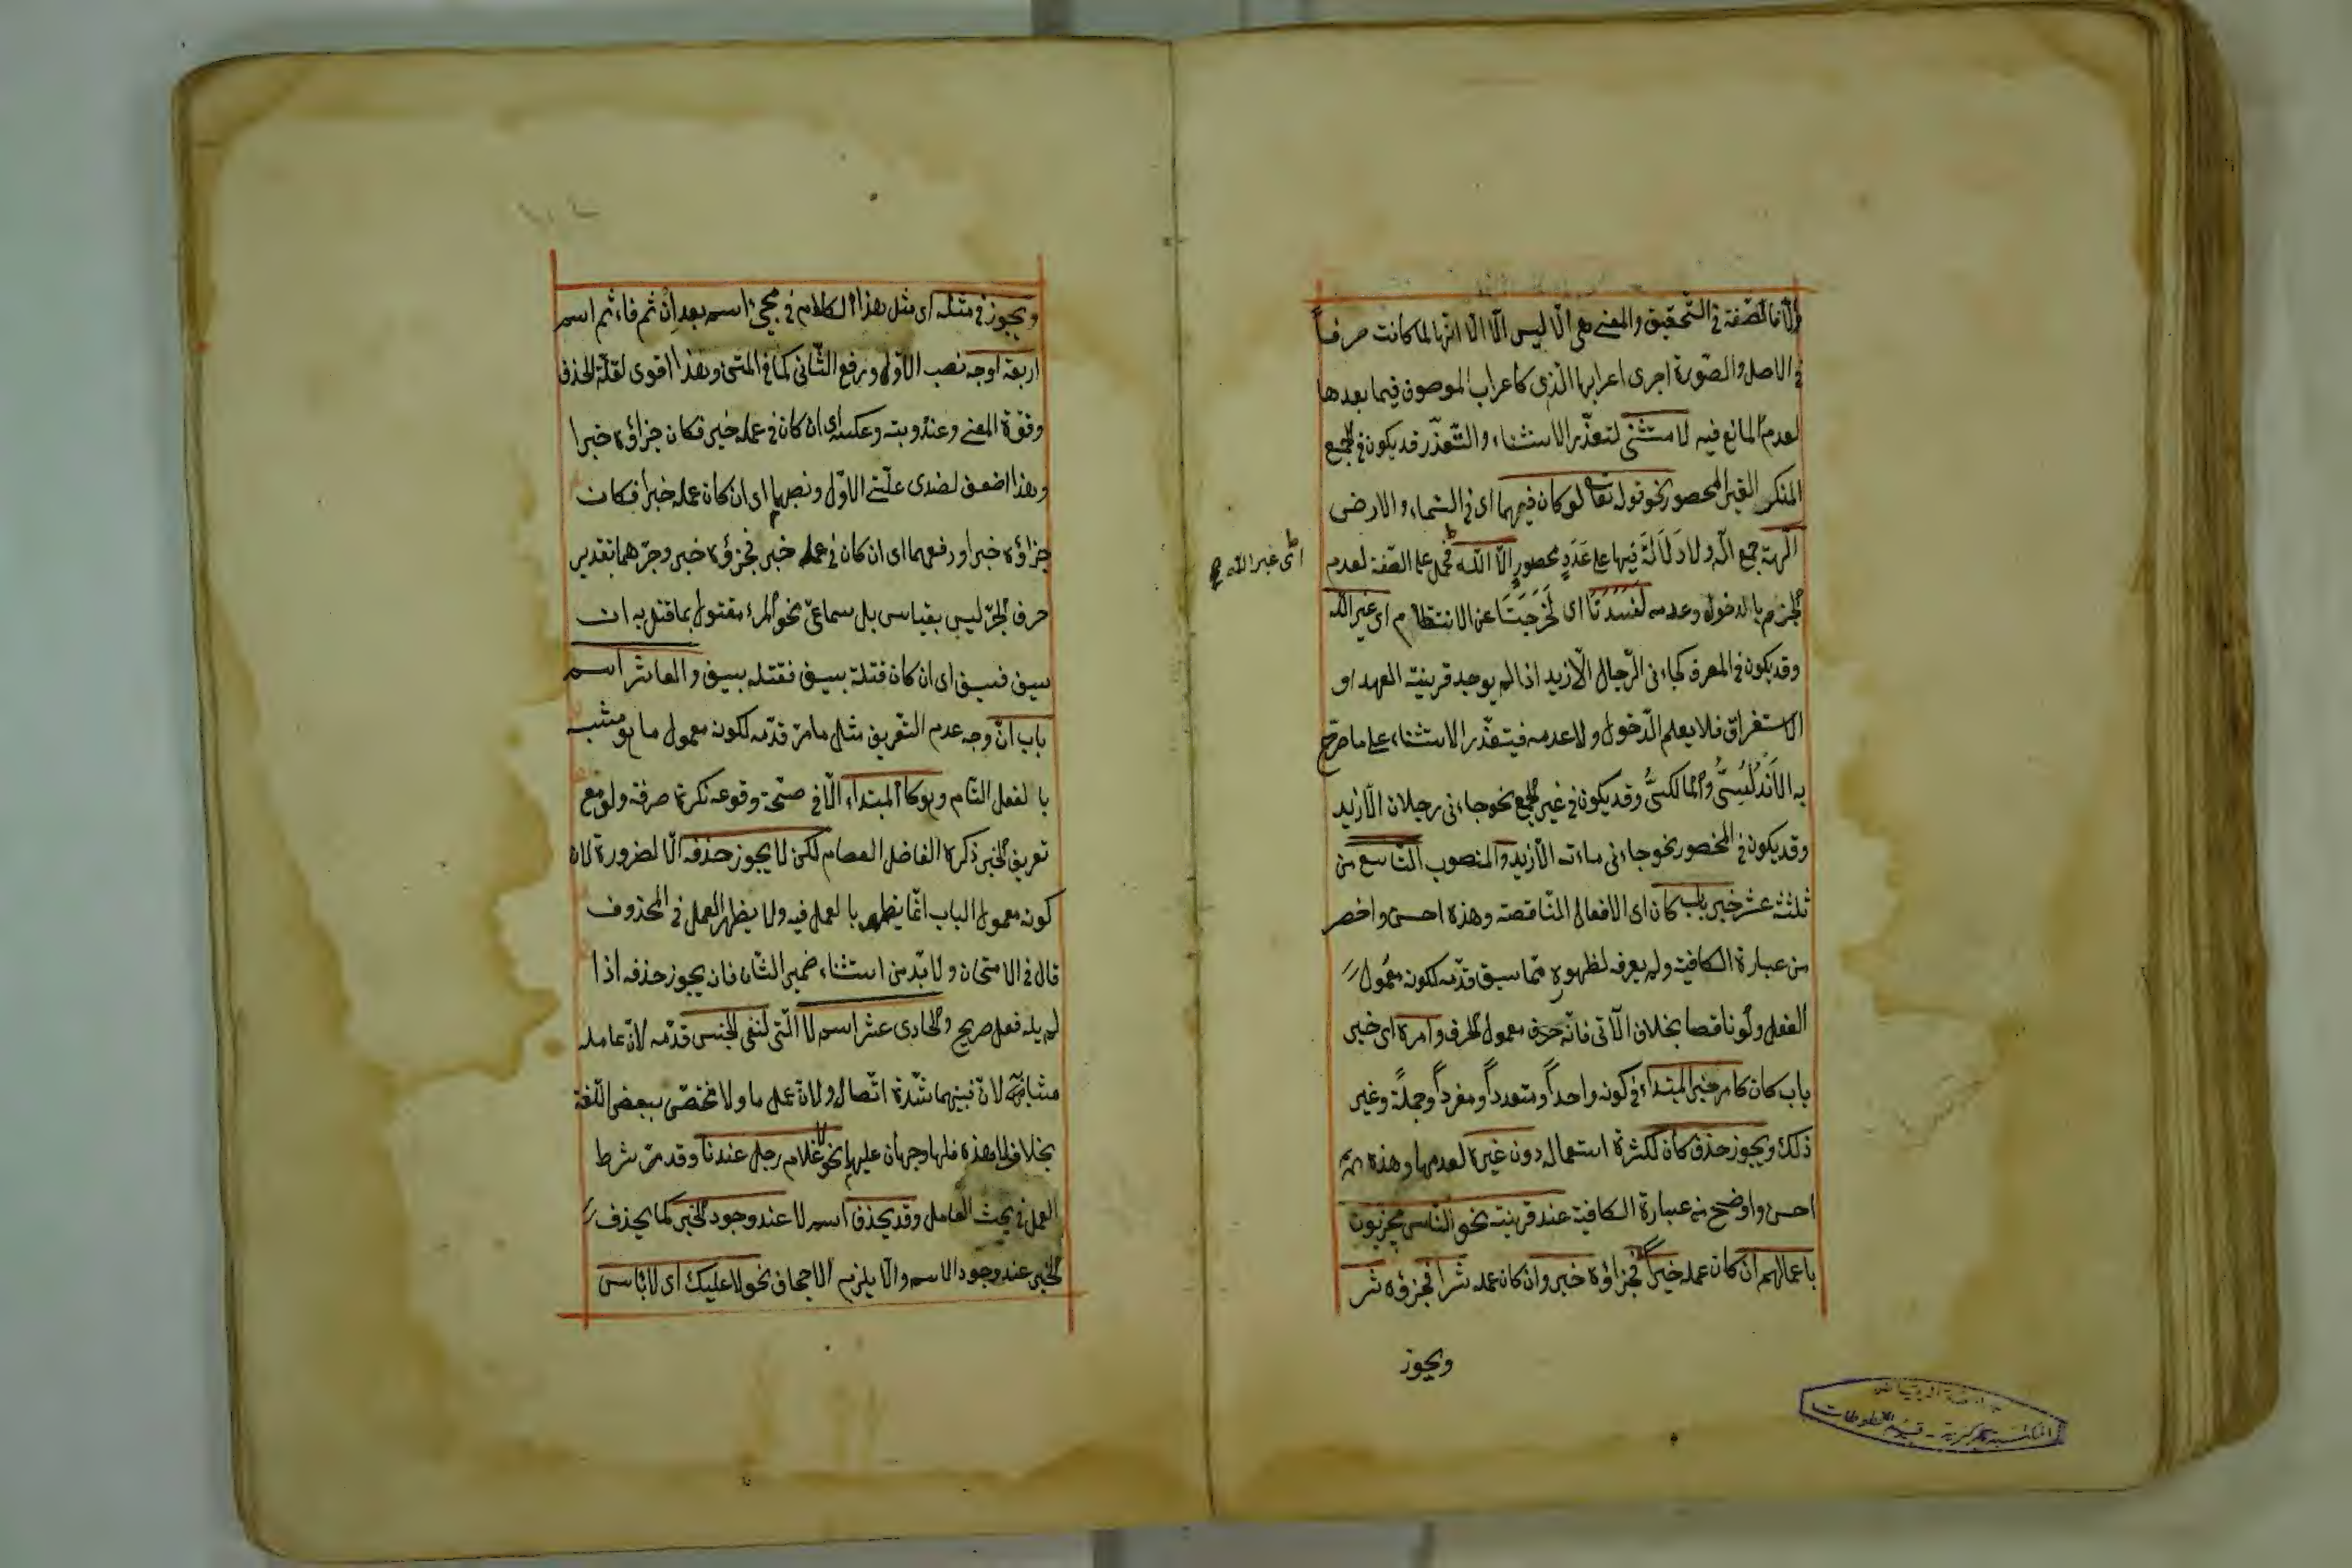 والا فالصفة في التحقيق والمعنى هي الا ليس الا الا انها لما كانت حرفا
في الاصل والصورة اجرى اعرابها الذى كاعراب الموصوف فيما بعدها
لعدم المانع فيه لا مستثنى لتعذر الاستثناء والتعذر قد يكون في الجمع
المنكر الغير المحصور نحو قوله تعالى لو كان فيهما اى في السماء والارض
آلهة جمع اله ولا دَلَالَةَ فيها على عَدَدٍ محصورٍ الا الله فحمل على الصفة لعدم
الجزم بالدخول وعدمه لَفَسَدَتَا اى لَخَرَجَتَا عن الانتظام اى غير الله
وقد يكون في المعرف كجاءنى الرجال الا زيد اذا لم يوجد قرينة العهد او
الاستغراق فلا يعلم الدخول ولا عدمه فيتعذر الاستثناء على ما صرح
به الاَنْدُلُسِىُّ والمالكىُّ وقد يكون في غير الجمع نحو جاءنى رجلان الا زيد
وقد يكون في المحصور نحو جاءنى مائة الا زيد والمنصوب التاسع من
ثلثة عشر خبر باب كان اى الافعال الناقصة وهذه احسن واخصر
من عبارة الكافية ولم يعرفه لظهوره مما سبق قدمه لكونه معمول
الفعل ولو ناقصا بخلاف الآتى فانه معمول الحرف وامره اى خبر
باب كان كامر خبر المبتداء في كونه واحداً ومتعدداً ومفرداً وجملةً وغير
ذلك ويجوز حذف كان لكثرة استعماله دون غيره لعدمها وهذه
احسن واوضح من عبارة الكافية عند قرينة نحو الناس مجزيون
باعمالهم ان كان عمله خيراً فجزاؤه خير وان كان عمله شرا فجزؤه شر
ويجوز
اى غير الله
ويجوز في مثله اى مثل هذا الكلام في مجئ اسم بعد اِنْ ثم فاء ثم اسم
اربعة اوجه نصب الاول ورفع الثانى كما في المتن وهذا اقوى لقلة الحذف
وقوة المعنى وعذوبته وعكسه اى ان كان في عمله خير فكان جزاؤه خيرا
وهذا اضعف لضدى علتى الاول ونصبهما اى ان كان عمله خيرا فكان
جزاؤه خيرا ورفعهما اى ان كان في عمله خير فجزؤه خير وجرهما بتقدير
حرف الجر ليس بقياس بل سماعى نحو المرء مقتول بما قتل به ان
سيف فسيف اى ان كان قتله بسيف فقتله بسيف والعاشر اسم
باب انّ وجه عدم التعريف مثل ما مر قدمه لكونه معمول ما هو مشبه
بالفعل التام وهو كالمبتداء الا في صحة وقوعه نكرة صرفة ولو مع
تعريف الخبر ذكره الفاضل العصام لكن لا يجوز حذفه الا لضرورة لان
كونه معمول الباب انما يظهر بالعمل فيه ولا يظهر العمل في المحذوف
قال في الامتحان ولا بد من استثناء ضمير الشان فانه يجوز حذفه اذا
لم يله فعل صريح والحادى عشر اسم لا التى لنفى الجنس قدمه لان عامله
مشابه لانّ فبينهما شدة اتصال ولان عمل ما ولا مختص ببعض اللغة
بخلاف لا هذه فلها وجهان عليها نحو لا غلام رجل عندنا وقد مر شرط
العمل في بحث العامل وقد يحذف اسم لا عند وجود الخبر كما يحذف
الخبر عند وجود الاسم والا يلزم الاجحاف نحو لا عليك اى لا بأس
جامعة الرياض
المكتبة المركزية - قسم المخطوطات